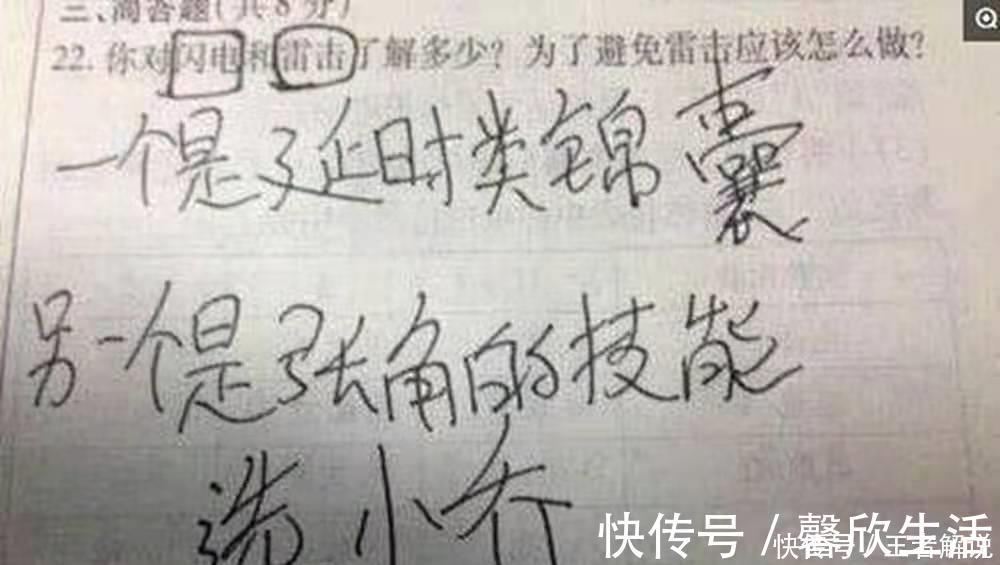 三、简答题(共8分)
22. 你对闪电和雷击了解多少?为了避免雷击应该怎么做?
一个是延时类锦囊
另一个是张角的技能
选小乔
快传号 / 馨欣生活
快传号 / 王者解说